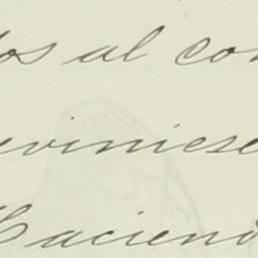 os al con
viniese
Haciend